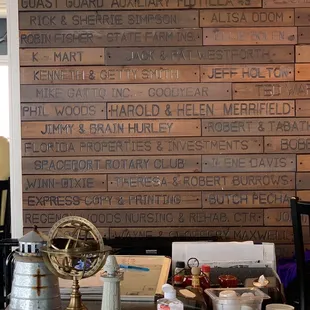 COAST GUARD AUXILIARY FLOTILLA
RICK & SHERRIE SIMPSON ALISA ODOM
ROBIN FISHER - STATE FARM
K - MART JACK & PAT WESTFORTH
KENNETH & BETTY SMITH JEFF HOLTON
MIKE GATTO INC. GOODYEAR TED
PHIL WOODS HAROLD & HELEN MERRIFIELD
JIMMY & BRAIN HURLEY ROBERT & TABAT
FLORIDA PROPERTIES & INVESTMENTS BOBB
SPACEPORT ROTARY CLUB ILENE DAVIS
WINN-DIXIE THERESA & ROBERT BURROWS
EXPRESS COPY & PRINTING BUTCH PECHA
WOODS NURSING & REHAB. CTR.
WAYNE & MAXWELL